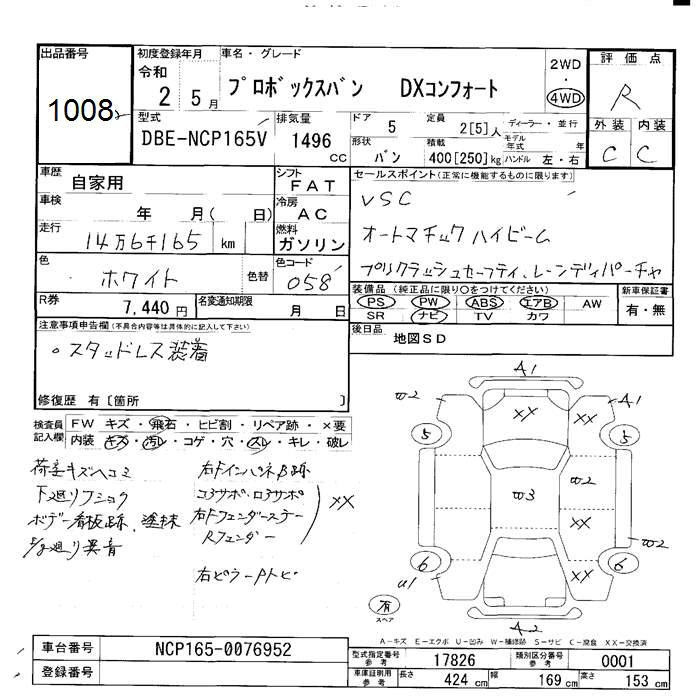 出品番号
1008
初度登録年月
令和
2 5月
車名・グレード
プロボックスバン DXコンフォート
2WD
・
4WD
評価点
R
外装 内装
C C
型式
DBE-NCP165V
排気量
1496
CC
ドア
5
定員
2[5]人
ディーラー・並行
形状
バン
積載
400[250]kg
モデル年式 年
ハンドル 左・右
車歴
自家用
車検
年 月( 日)
走行
14万6千165 km
色
ホワイト
色替
シフト
FAT
冷房
AC
燃料
ガソリン
色コード
058
R券
7,440円
名変通知期限
月 日
セールスポイント(正常に機能するものに限ります)
VSC
オートマチックハイビーム
プリクラッシュセーフティ、レーンディパーチャ
装備品(純正品に限り○をつけてください)
PS PW ABS エアB AW
SR ナビ TV カワ
新車保証書
有・無
後日品
地図SD
注意事項申告欄(不具合内容等は具体的に記入して下さい)
。スタッドレス装着
修復歴 有[箇所 ]
検査員記入欄
FW キズ・飛石・ヒビ割・リペア跡・×要
内装 キズ・汚レ・コゲ・穴・スレ・キレ・破レ
荷室キズヘコミ
下廻りフショク
ボデー看板跡、塗抹
右ピラーPトビ
XX
A1
W2 XX XX A1
5 5
W3 W2
XX W2
6 6
U1 XX
A2
有
スペア
A-キズ E-エクボ U-凹み W-補修跡 S-サビ C-腐食 XX-交換済
車台番号
NCP165-0076952
登録番号
型式指定番号
参考
17826
類別区分番号
参考
0001
車庫証明用
参考
長さ
424 cm
幅
169 cm
高さ
153 cm